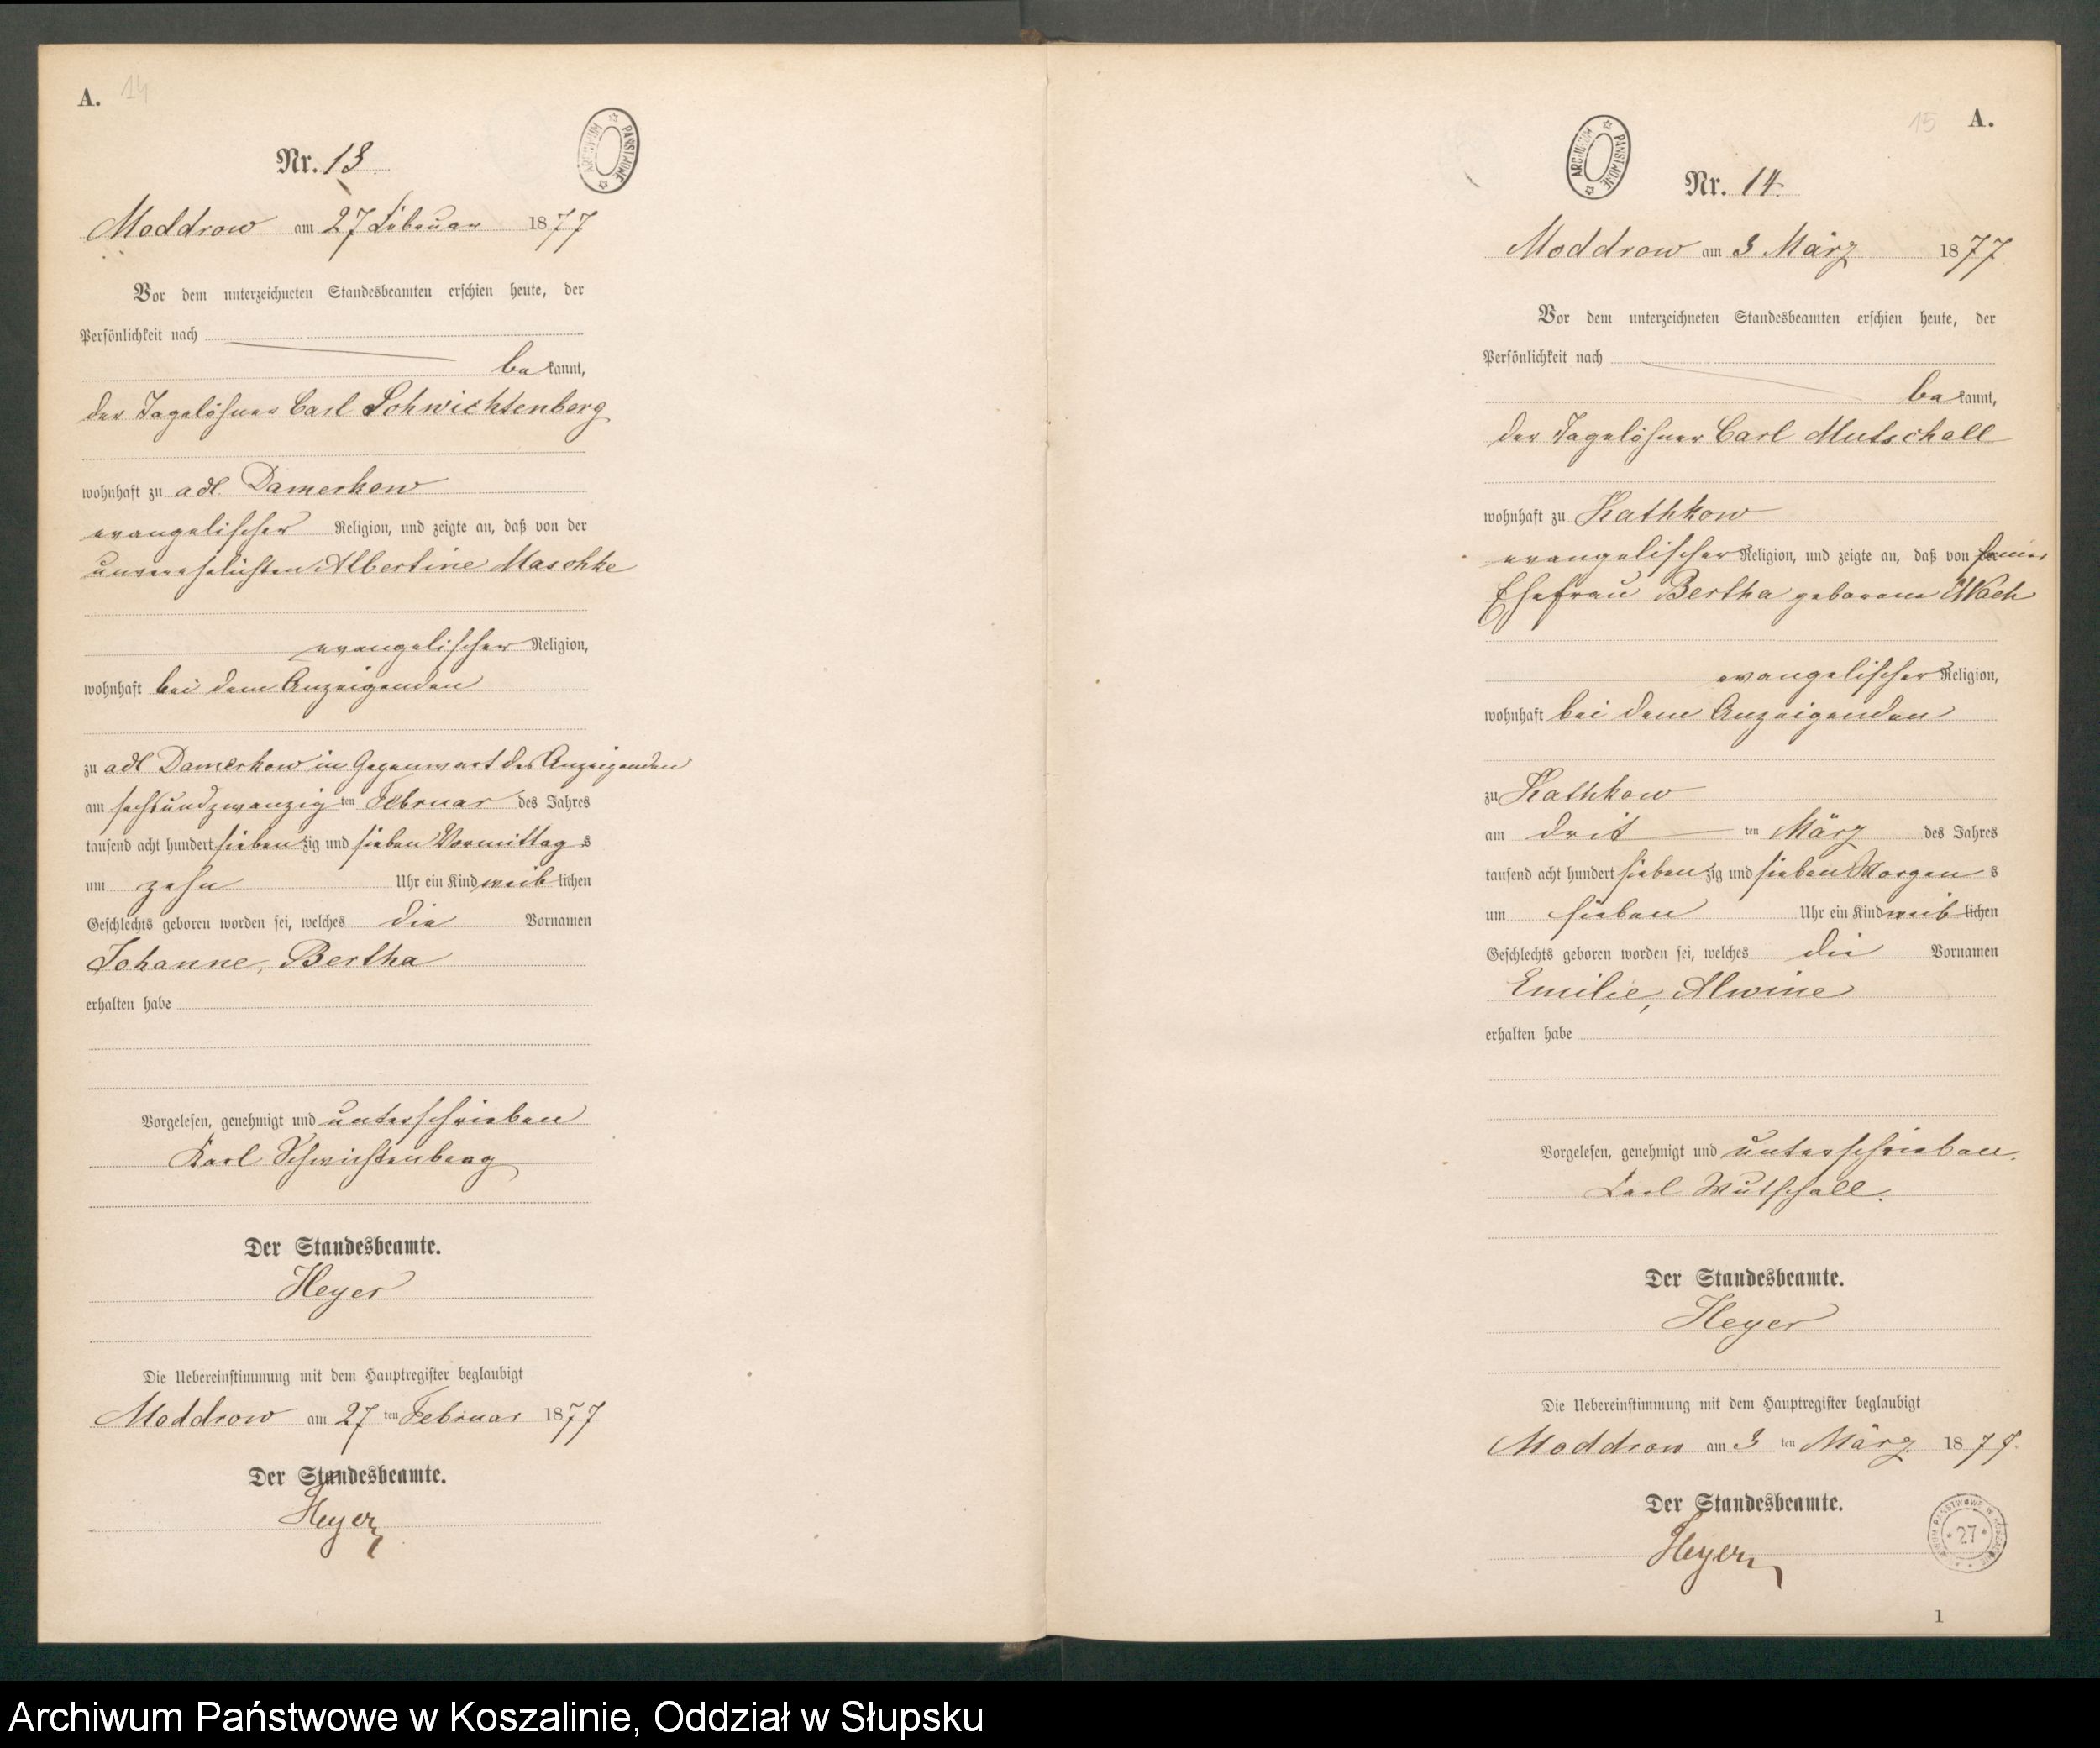 A. 14
ARCHIWUM PAŃSTWOWE
Nr. 13.
Moddrow am 27 Februar 1877
Vor dem unterzeichneten Standesbeamten erschien heute, der
Persönlichkeit nach
bekannt,
der Tagelöhner Carl Schwichtenberg
wohnhaft zu adl. Damerkow
evangelischer Religion, und zeigte an, daß von der
unverehelichten Albertine Maschke
evangelischer Religion,
wohnhaft bei dem Anzeigenden
zu adl Damerkow in Gegenwart des Anzeigenden
am sechsundzwanzig ten Februar des Jahres
tausend acht hundert siebenzig und sieben Vormittags
um zehn Uhr ein Kind weiblichen
Geschlechts geboren worden sei, welches die Vornamen
Johanne, Bertha
erhalten habe
Vorgelesen, genehmigt und unterschrieben
Karl Schwichtenberg
Der Standesbeamte.
Heyer
Die Uebereinstimmung mit dem Hauptregister beglaubigt
Moddrow am 27 ten Februar 1877
Der Standesbeamte.
Heyer
15 A.
ARCHIWUM PAŃSTWOWE
Nr. 14.
Moddrow am 3 März 1877.
Vor dem unterzeichneten Standesbeamten erschien heute, der
Persönlichkeit nach
bekannt,
der Tagelöhner Carl Mutschall
wohnhaft zu Kathkow
evangelischer Religion, und zeigte an, daß von seiner
Ehefrau Bertha geborene
evangelischer Religion,
wohnhaft bei dem Anzeigenden
zu Kathkow
am drit ten März des Jahres
tausend acht hundert siebenzig und sieben Morgens
um sieben Uhr ein Kind weiblichen
Geschlechts geboren worden sei, welches die Vornamen
Emilie, Alwine
erhalten habe
Vorgelesen, genehmigt und unterschrieben.
Karl Mutschall.
Der Standesbeamte.
Heyer
Die Uebereinstimmung mit dem Hauptregister beglaubigt
Moddrow am 3 ten März 1877.
Der Standesbeamte.
Heyer
27
1
Archiwum Państwowe w Koszalinie, Oddział w Słupsku